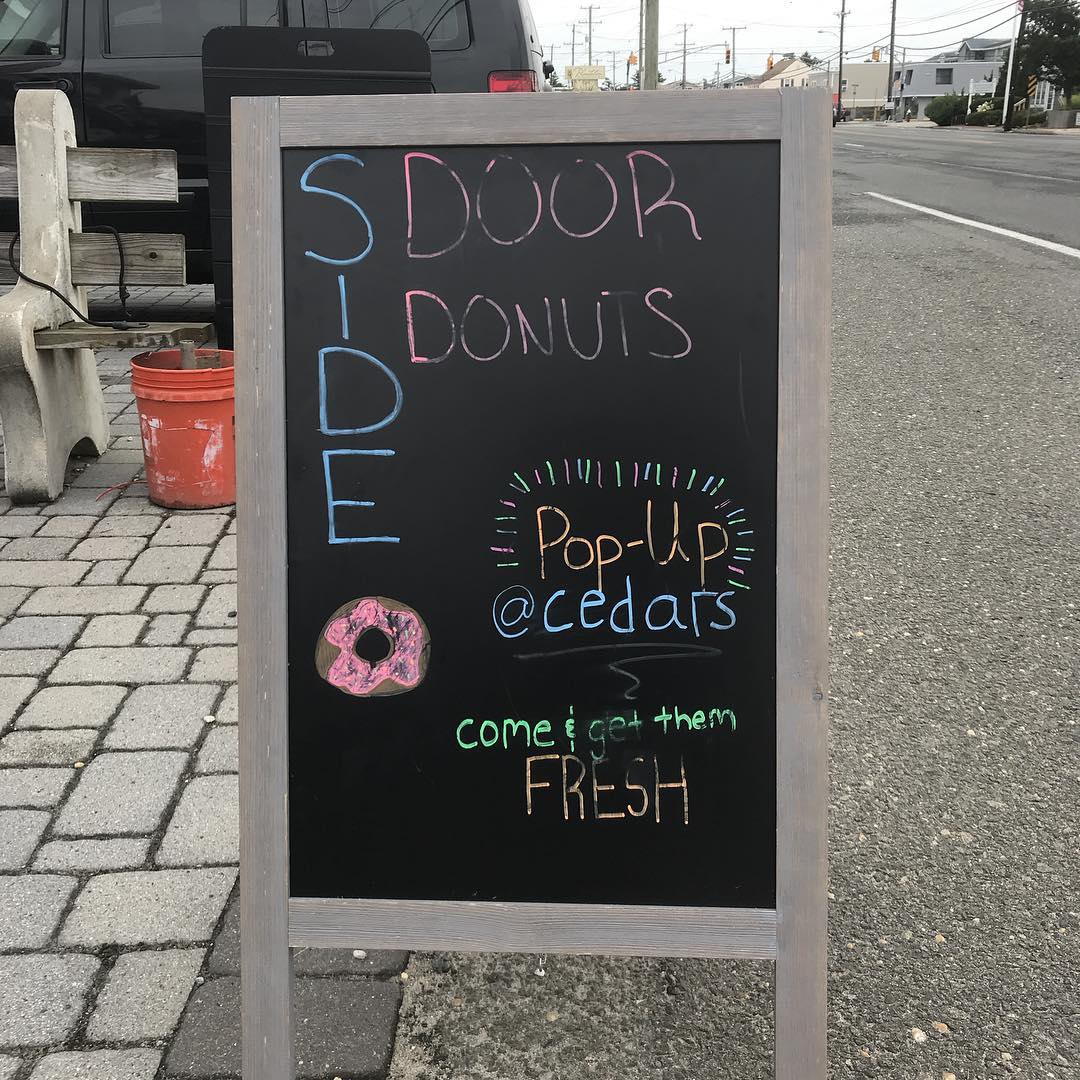 SIDE
DOOR
DONUTS
Pop-Up
@cedars
come & get them
FRESH